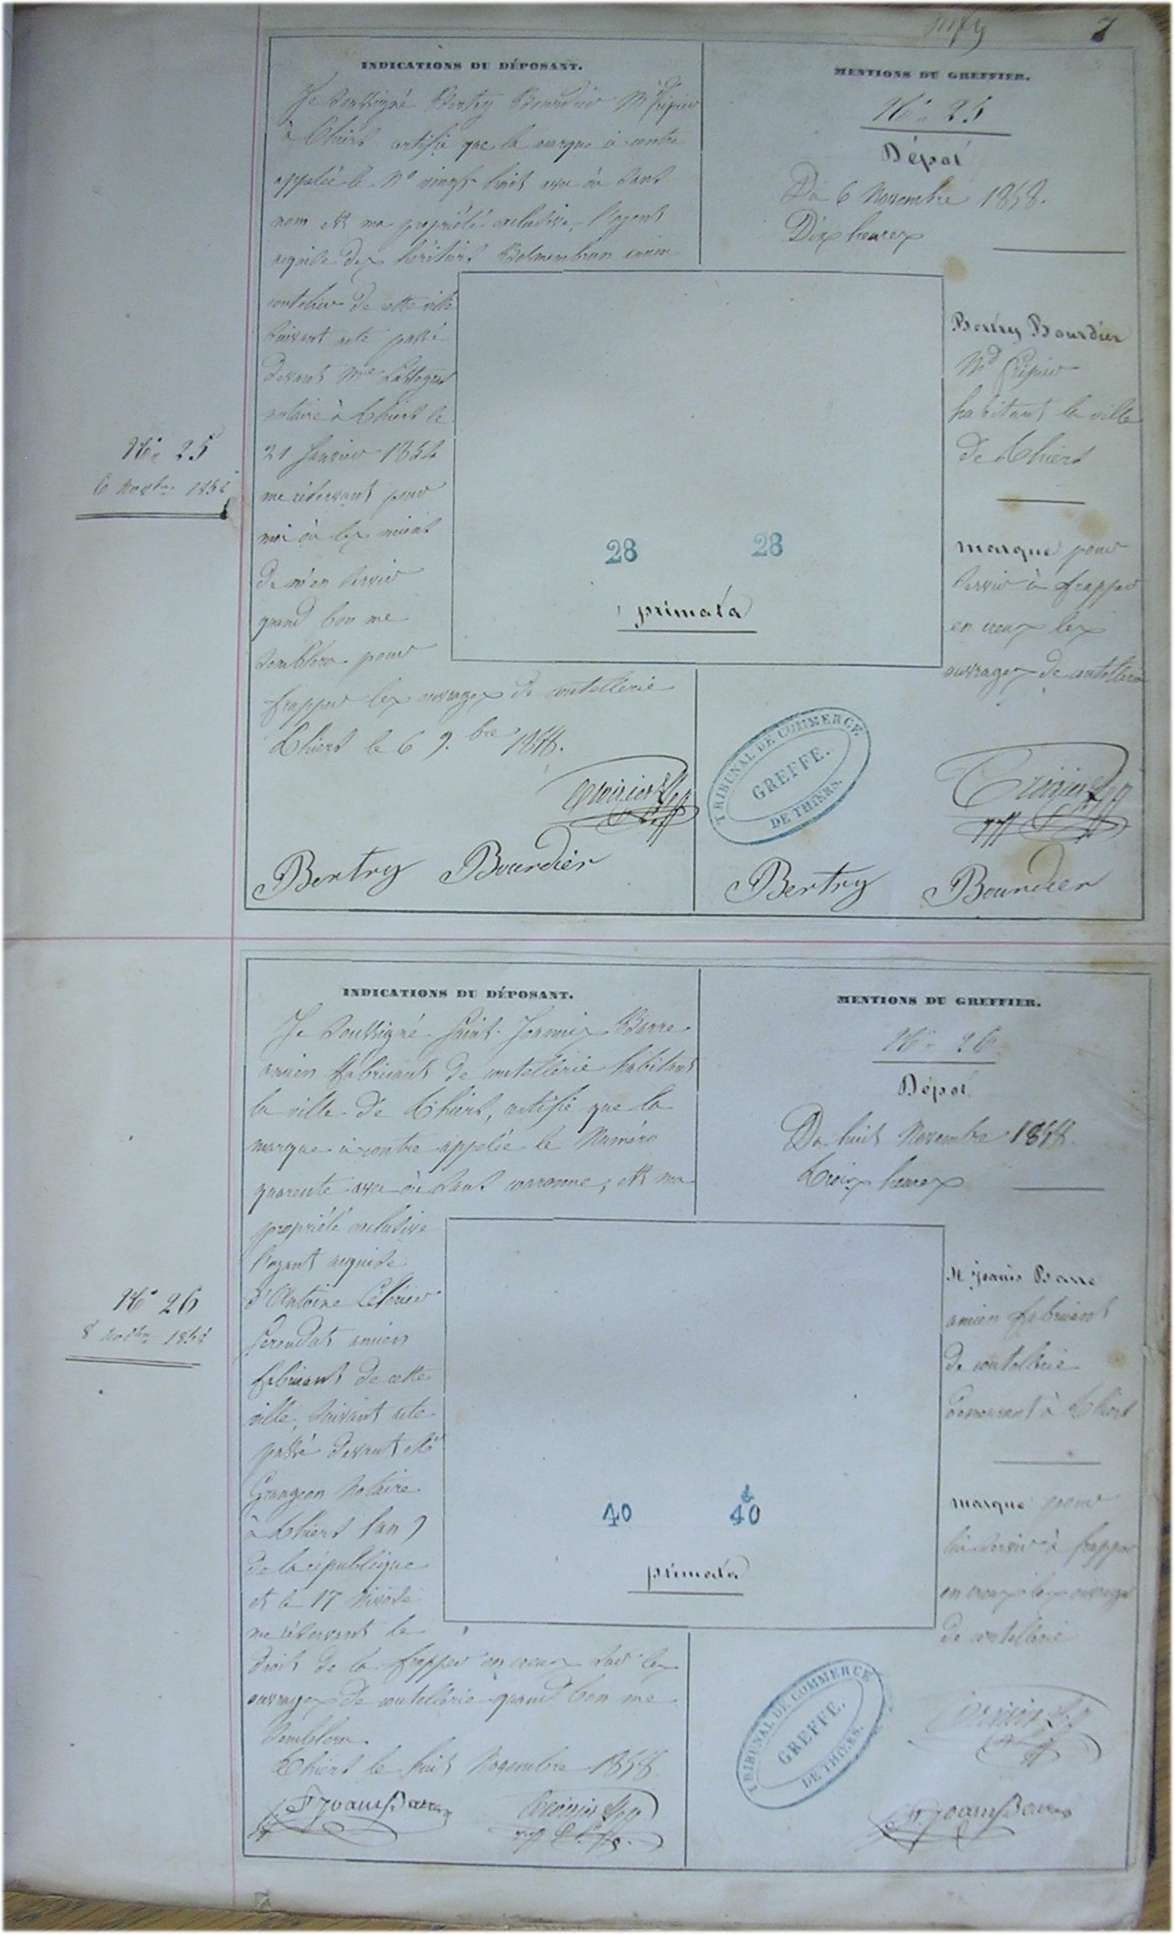 7
INDICATIONS DU DÉPOSANT.
Je soussigné Bertry Bourdier Md fripier
à Thiers certifie que la marque ci contre
appelée le No vingt huit avec ou sans
nom est ma propriété exclusive, l'ayant
acquise des héritiers ancien
coutelier de cette ville
suivant acte passé
devant Me
notaire à Thiers le
21 Janvier 1854
me réservant pour
moi ou les miens
de m'en servir
quand bon me
semblera pour
frapper les ouvrages de coutellerie
Thiers le 6 9.bre 1858.
Bertry Bourdier
No 25
6 novbre 1858
28 28
primata
MENTIONS DU GREFFIER.
No 25
Dépôt
Du 6 Novembre 1858.
Dix heures
Bertry Bourdier
Md fripier
habitant la ville
de Thiers
marque pour
servir à frapper
en creux les
ouvrages de coutellerie
TRIBUNAL DE COMMERCE
GREFFE.
DE THIERS.
Bertry Bourdier
INDICATIONS DU DÉPOSANT.
Je soussigné Saint-Joanis Barre
ancien fabricant de coutellerie habitant
la ville de Thiers, certifie que la
marque ci contre appelée le Numéro
quarante avec ou sans couronne, est ma
propriété exclusive
l'ayant acquise
d'Antoine
ancien
fabricant de cette
ville, suivant acte
passé devant Me
Grangeon Notaire
à Thiers l'an 7
de la république
et le 17 Nivose
me réservant le
droit de la frapper en creux sur les
ouvrages de coutellerie quand bon me
semblera.
Thiers le huit Novembre 1858
St Joanis Barre
No 26
8 novbre 1858
40 40
primata
MENTIONS DU GREFFIER.
No 26
Dépôt
Du huit Novembre 1858.
Trois heures
St Joanis Barre
ancien fabricant
de coutellerie
demeurant à Thiers
marque pour
lui servir à frapper
en creux les ouvrages
de coutellerie
TRIBUNAL DE COMMERCE
GREFFE.
DE THIERS.
St Joanis Barre